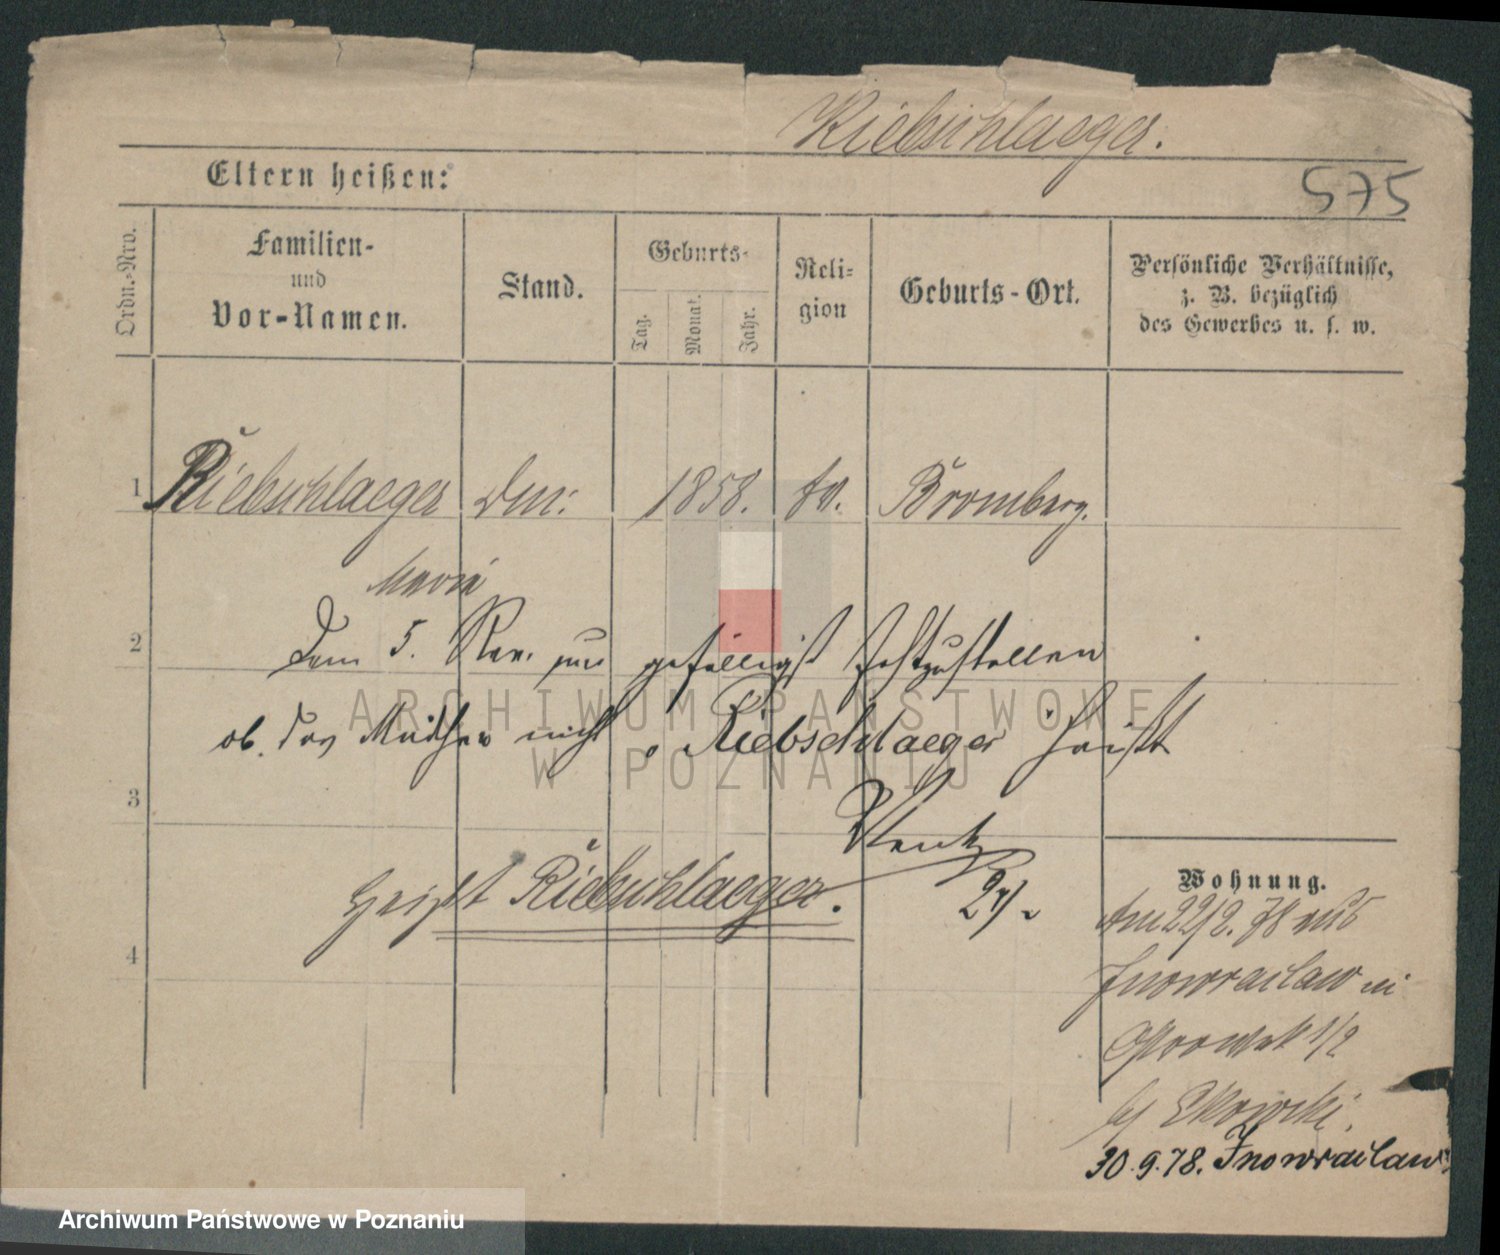 Riebschlaeger.
Eltern heißen:
575
Ordn.-Nro.
Familien-
und
Vor-Namen.
Stand.
Geburts-
Tag.
Monat.
Jahr.
Reli-
gion
Geburts-Ort.
Persönliche Verhältnisse,
z. B. bezüglich
des Gewerbes u. s. w.
1 Riebschlaeger 1858. ev. Bromberg.
Marie
2
Dem 5. Rev. gefälligst festzustellen
ob das Mädchen nicht Riebschlaeger heißt
3
Heißt Riebschlaeger.
4
Wohnung.
Am 22/2. 78 aus
Inowraclaw in
Ostrowek 1/2
30.9.78. Inowraclaw
ARCHIWUM PAŃSTWOWE
W POZNANIU
Archiwum Państwowe w Poznaniu